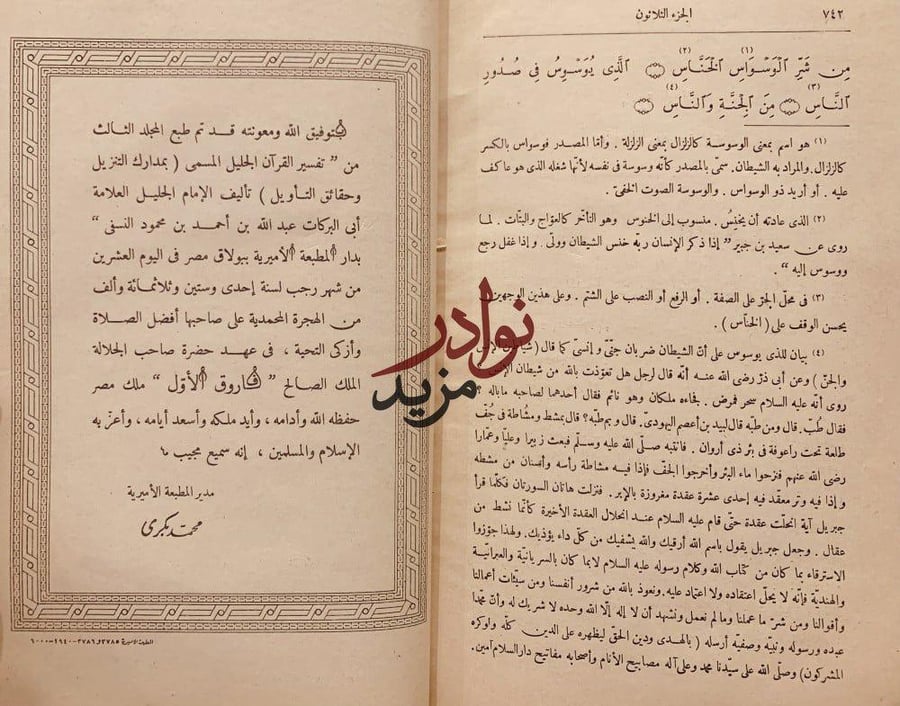 الجزء الثلاثون
٧٤٢
مِن شَرِّ ٱلْوَسْوَاسِ ٱلْخَنَّاسِ ٱلَّذِى يُوَسْوِسُ فِى صُدُورِ
ٱلنَّاسِ مِنَ ٱلْجِنَّةِ وَٱلنَّاسِ
(١) هو اسم بمعنى الوسوسة كالزلزال بمعنى الزلزلة . وأمّا المصدر فوسواس بالكسر
كالزلزال. والمراد به الشيطان. سمّى بالمصدر كأنّه وسوسة فى نفسه لأنّها شغله الذى هو عاكف
عليه . أو أريد ذو الوسواس . والوسوسة الصوت الخفىّ .
(٢) الذى عادته أن يخنِسُ . منسوب إلى الخنوس وهو التأخّر كالعوّاج والبتّات . لما
روى عن سعيد بن جبير " إذا ذكر الإنسان ربّه خنس الشيطان وولّى . وإذا غفل رجع
ووسوس إليه " .
(٣) فى محلّ الجرّ على الصفة . أو الرفع أو النصب على الشتم . وعلى هذين الوجهين
يحسن الوقف على (الخنّاس) .
(٤) بيان للذى يوسوس على أنّ الشيطان ضربان جنّىّ وإنسىّ كما قال (شياطين الإنس
والجنّ) وعن أبى ذرّ رضى الله عنه أنّه قال لرجل هل تعوّذت بالله من شيطان الإنس
روى أنّه عليه السلام سحر فمرض . فجاءه ملكان وهو نائم فقال أحدهما لصاحبه ما باله ؟
فقال طُبّ. قال ومن طبّه قال لبيد بن أعصم اليهودىّ. قال وبم طبّه؟ قال بمشط ومشاطة فى جُفّ
طلعة تحت راعوفة فى بئر ذى أروان . فانتبه صلّى الله عليه وسلّم فبعث زبيرا وعليّا وعمّارا
رضى الله عنهم فنزحوا ماء البئر وأخرجوا الجفّ فإذا فيه مشاطة رأسه وأسنان من مشطه
وإذا فيه وتر معقّد فيه إحدى عشرة عقدة مغروزة بالإبر . فنزلت هاتان السورتان فكلّما قرأ
جبريل آية انحلّت عقدة حتّى قام عليه السلام عند انحلال العقدة الأخيرة كأنّما نشط من
عقال . وجعل جبريل يقول باسم الله أرقيك والله يشفيك من كلّ داء يؤذيك. ولهذا جوّزوا
الاسترقاء بما كان من كتاب الله وكلام رسوله عليه السلام لا بما كان بالسريانيّة والعبرانيّة
والهنديّة فإنّه لا يحلّ اعتقاده ولا اعتماد عليه. ونعوذ بالله من شرور أنفسنا ومن سيّئات أعمالنا
وأقوالنا ومن شرّ ما عملنا وما لم نعمل ونشهد أن لا إله إلّا الله وحده لا شريك له وأنّ محمّدا
عبده ورسوله ونبيّه وصفيّه أرسله (بالهدى ودين الحقّ ليظهره على الدين كلّه ولو كره
المشركون) وصلّى الله على سيّدنا محمد وعلى آله مصابيح الأنام وأصحابه مفاتيح دار السلام آمين.
بتوفيق الله ومعونته قد تم طبع المجلد الثالث
من " تفسير القرآن الجليل المسمى ( بمدارك التنزيل
وحقائق التأويل ) تأليف الإمام الجليل العلامة
أبى البركات عبد الله بن أحمد بن محمود النسفى "
بدار المطبعة الأميرية ببولاق مصر فى اليوم العشرين
من شهر رجب لسنة إحدى وستين وثلاثمائة وألف
من الهجرة المحمدية على صاحبها أفضل الصلاة
وأزكى التحية ، فى عهد حضرة صاحب الجلالة
الملك الصالح " فاروق الأوّل " ملك مصر
حفظه الله وأدامه ، وأيد ملكه وأسعد أيامه ، وأعزّ به
الإسلام والمسلمين ، إنه سميع مجيب
مدير المطبعة الأميرية
محمد بكرى
نوادر
مزيد